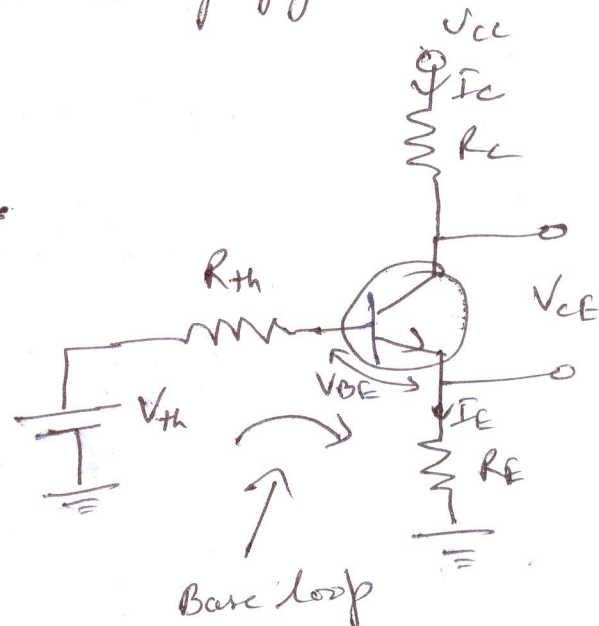 VCC
IC
RC
Rth
VCE
VBE
Vth
IE
RE
Base loop